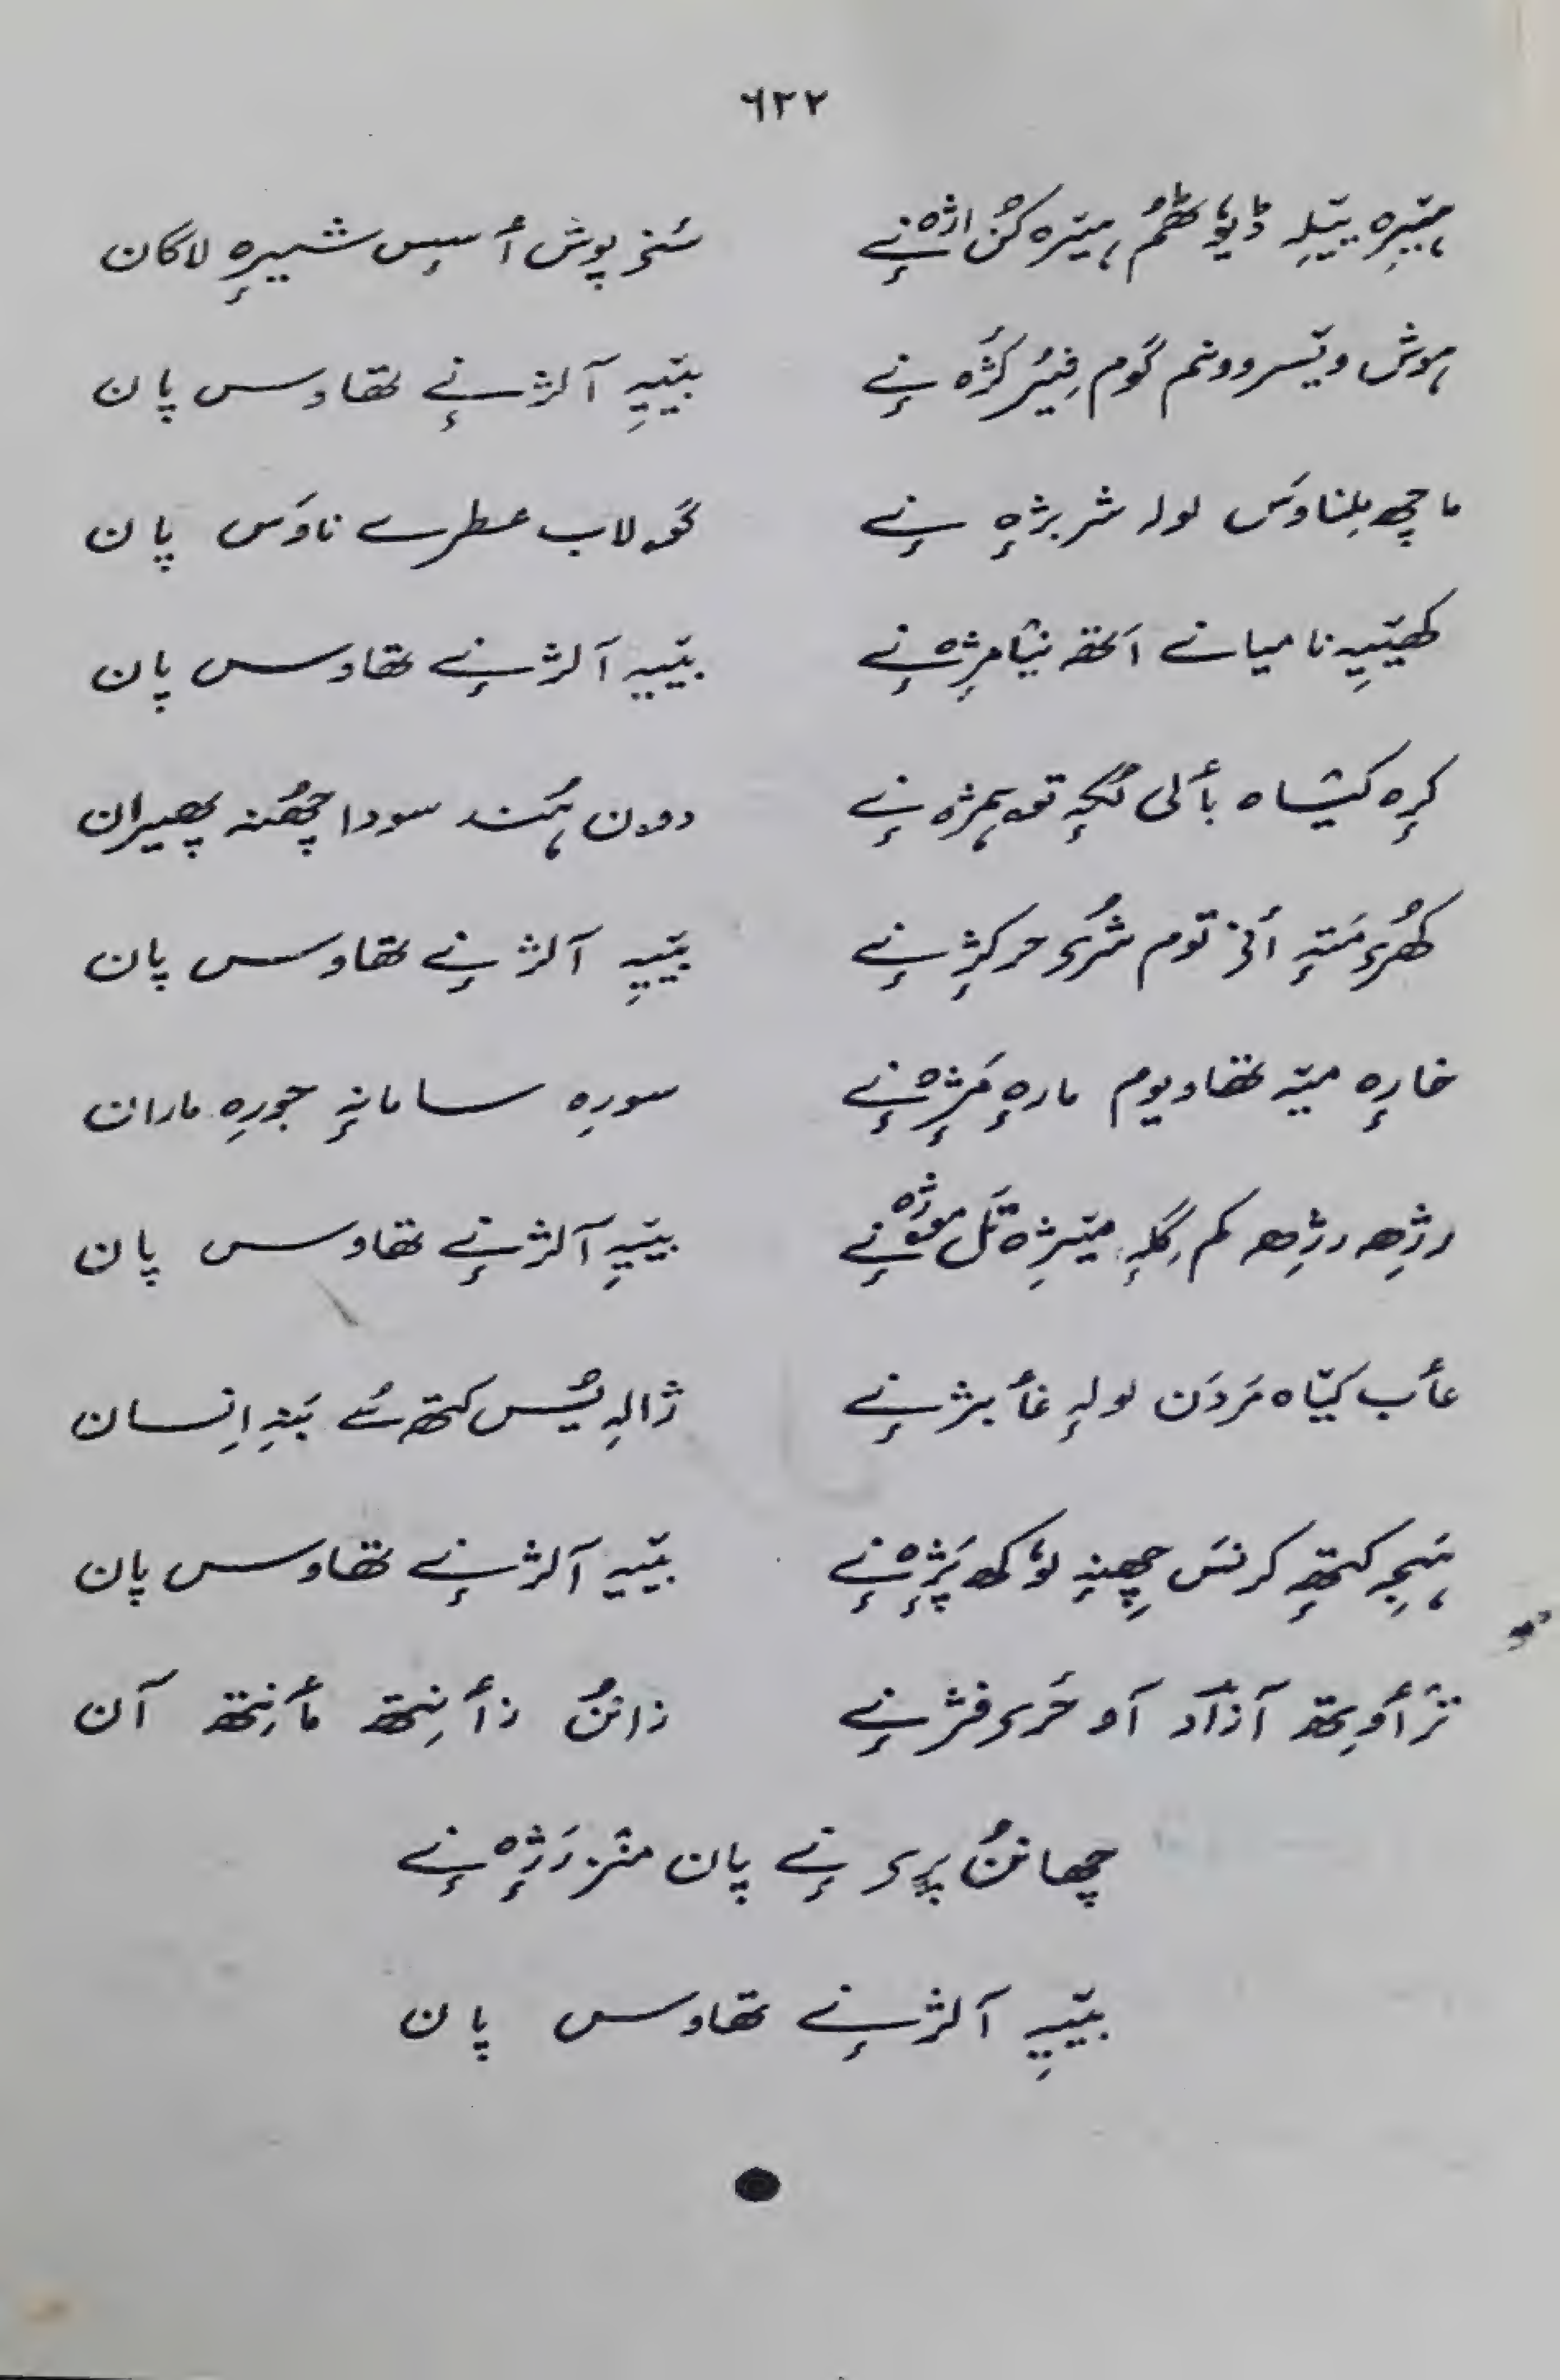 ٦٢٢
ہیٚرِہ ییٚلہِ ڈیوٗٹھم ہیٚرہ کُن اژھٕنے سُنز پوش أسِس شیرٕہ لاگان
ہوش ویٚسر ووٚنم گوٚم فِیُر کژھ نے بییٚہِ آلژنے تھاوس پان
ماچھ بلناوَس لولہ شربژٕہ نے گۄلاب عطرے ناوَس پان
کھییٚہِ نا میانے اَتھہ نیٚامژٕہ نے بییٚہ آلژنے تھاوس پان
کرٕہ کیٚاہ بألی لُکہٕ تۄہمژہ نے دۄن ہُند سودا چھُنہ پھیران
کھُرۍ مَتہٕ أنۍ توم شُرۍ حرکژٕ نے بییٚہِ آلژ نے تھاوس پان
خارٕہ میٚہ تھاویوم مارٕہ مَژٕہ نے سورِہ سامانہٕ جورِہ ماران
رژِھ رژِھ کم گلہٕ میٚژِہ تَل موژہ نے بییٚہِ آلژنے تھاوس پان
عأب کیٚاہ مَردَن لولہٕ غأبژنے ژالہِ یُس کتھ سُے بَنہِ اِنسان
ہَیچہِ کتھہٕ کرنس چھِنہٕ لوٗکھ پَژٕہ نے بییٚہ آلژ نے تھاوس پان
ترٛأوِتھ آزاد آو حَرۍ فژنے زانُن زأنِتھ مأنِتھ آن
چھانُن پرۍ نے پان منٛز رَژٕہ نے
بییٚہِ آلژنے تھاوس پان